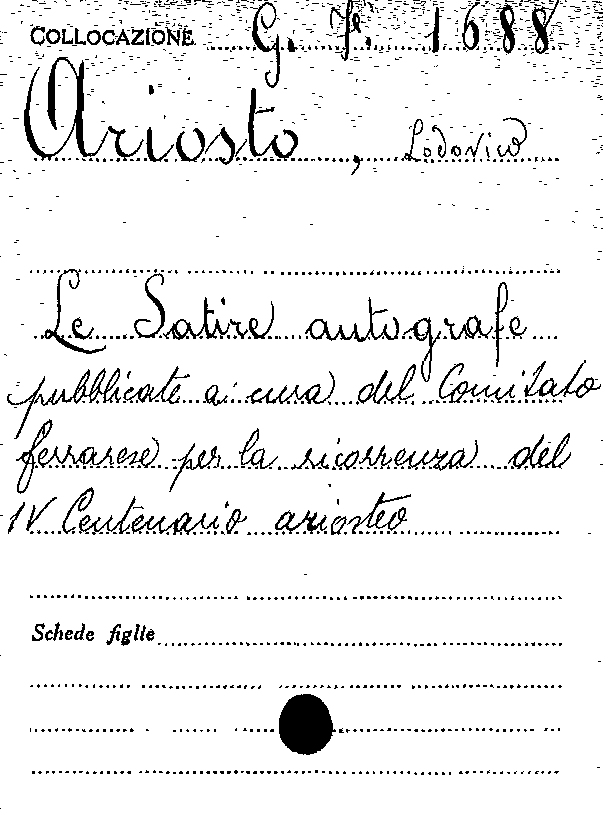 COLLOCAZIONE G. Fe. 1688
Ariosto, Lodovico
Le Satire autografe
pubblicate a cura del Comitato
ferrarese per la ricorrenza del
IV Centenario ariosteo
Schede figlie